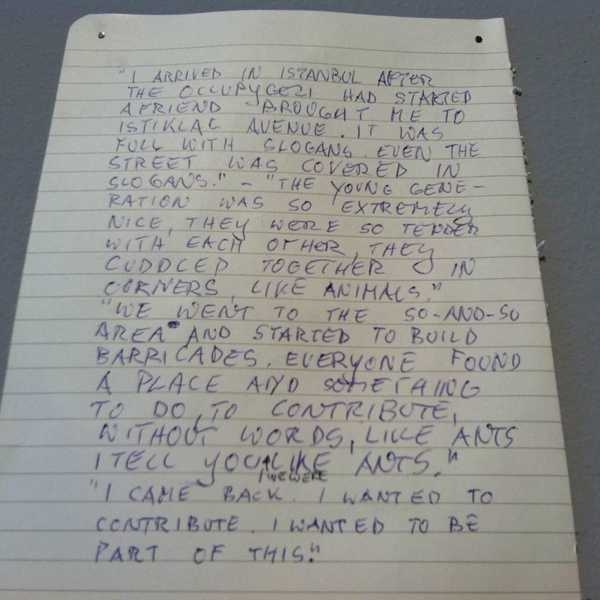 "I ARRIVED IN ISTANBUL AFTER
THE OCCUPYGEZI HAD STARTED
A FRIEND BROUGHT ME TO
ISTIKLAL AVENUE. IT WAS
FULL WITH SLOGANS. EVEN THE
STREET WAS COVERED IN
SLOGANS." - "THE YOUNG GENE-
RATION WAS SO EXTREMELY
NICE, THEY WERE SO TENDER
WITH EACH OTHER, THEY
CUDDLED TOGETHER IN
CORNERS, LIKE ANIMALS."
"WE WENT TO THE SO-AND-SO
AREA" AND STARTED TO BUILD
BARRICADES. EVERYONE FOUND
A PLACE AND SOMETHING
TO DO, TO CONTRIBUTE,
WITHOUT WORDS, LIKE ANTS
I TELL YOU, LIKE ANTS."
WE WERE
"I CAME BACK. I WANTED TO
CONTRIBUTE. I WANTED TO BE
PART OF THIS."